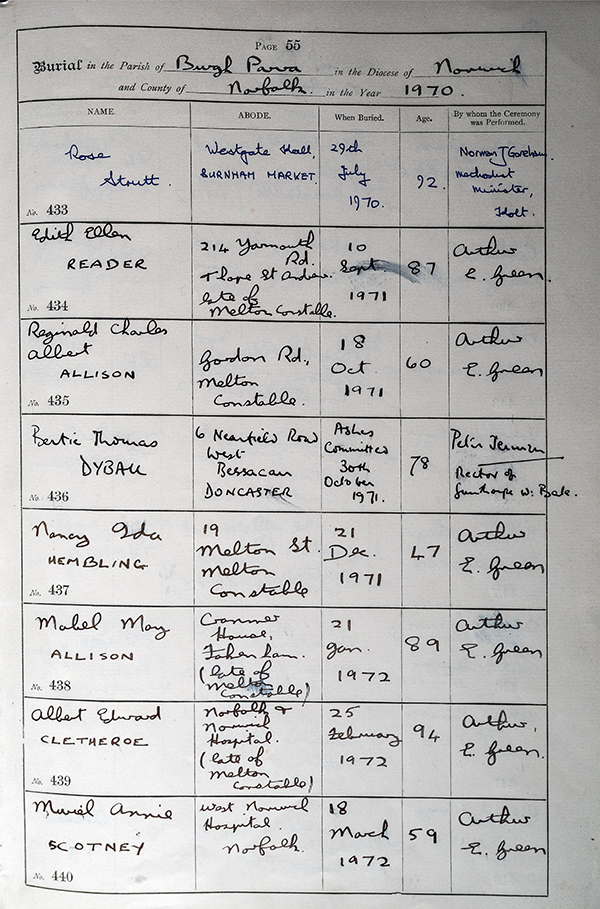 PAGE 55
Burial in the Parish of Burgh Parva in the Diocese of Norwich
and County of Norfolk. in the Year 1970.
NAME. ABODE. When Buried. Age. By whom the Ceremony was Performed.
Rose
Strutt.
No. 433
Westgate Hall,
BURNHAM MARKET.
29th
July
1970.
92.
Norman J
Methodist
Minister,
Holt.
Edith Ellen
READER
No. 434
214 Yarmouth
Rd.
Thorpe St Andrew.
late of
Melton Constable.
10
Sept.
1971
87
Arthur
E. Green.
Reginald Charles
Albert
ALLISON
No. 435
Gordon Rd.,
Melton
Constable.
18
Oct
1971
60
Arthur
E. Green
Bertie Thomas
DYBALL
No. 436
6 Nearfield Road
West
Bessacarr
DONCASTER
Ashes
Committed
30th
October
1971.
78
Peter
Rector of
Gunthorpe w. Bale.
Nancy Ida
HEMBLING
No. 437
19
Melton St.
Melton
Constable
21
Dec.
1971
47
Arthur
E. Green
Mabel May
ALLISON
No. 438
Cranmer
House,
Fakenham.
(late of
Melton
Constable)
21
Jan.
1972
89
Arthur
E. Green
Albert Edward
CLETHEROE
No. 439
Norfolk &
Norwich
Hospital.
(late of
Melton
Constable)
25
February
1972
94
Arthur,
E. Green.
Muriel Annie
SCOTNEY
No. 440
West Norwich
Hospital.
Norfolk.
18
March
1972
59
Arthur
E. Green